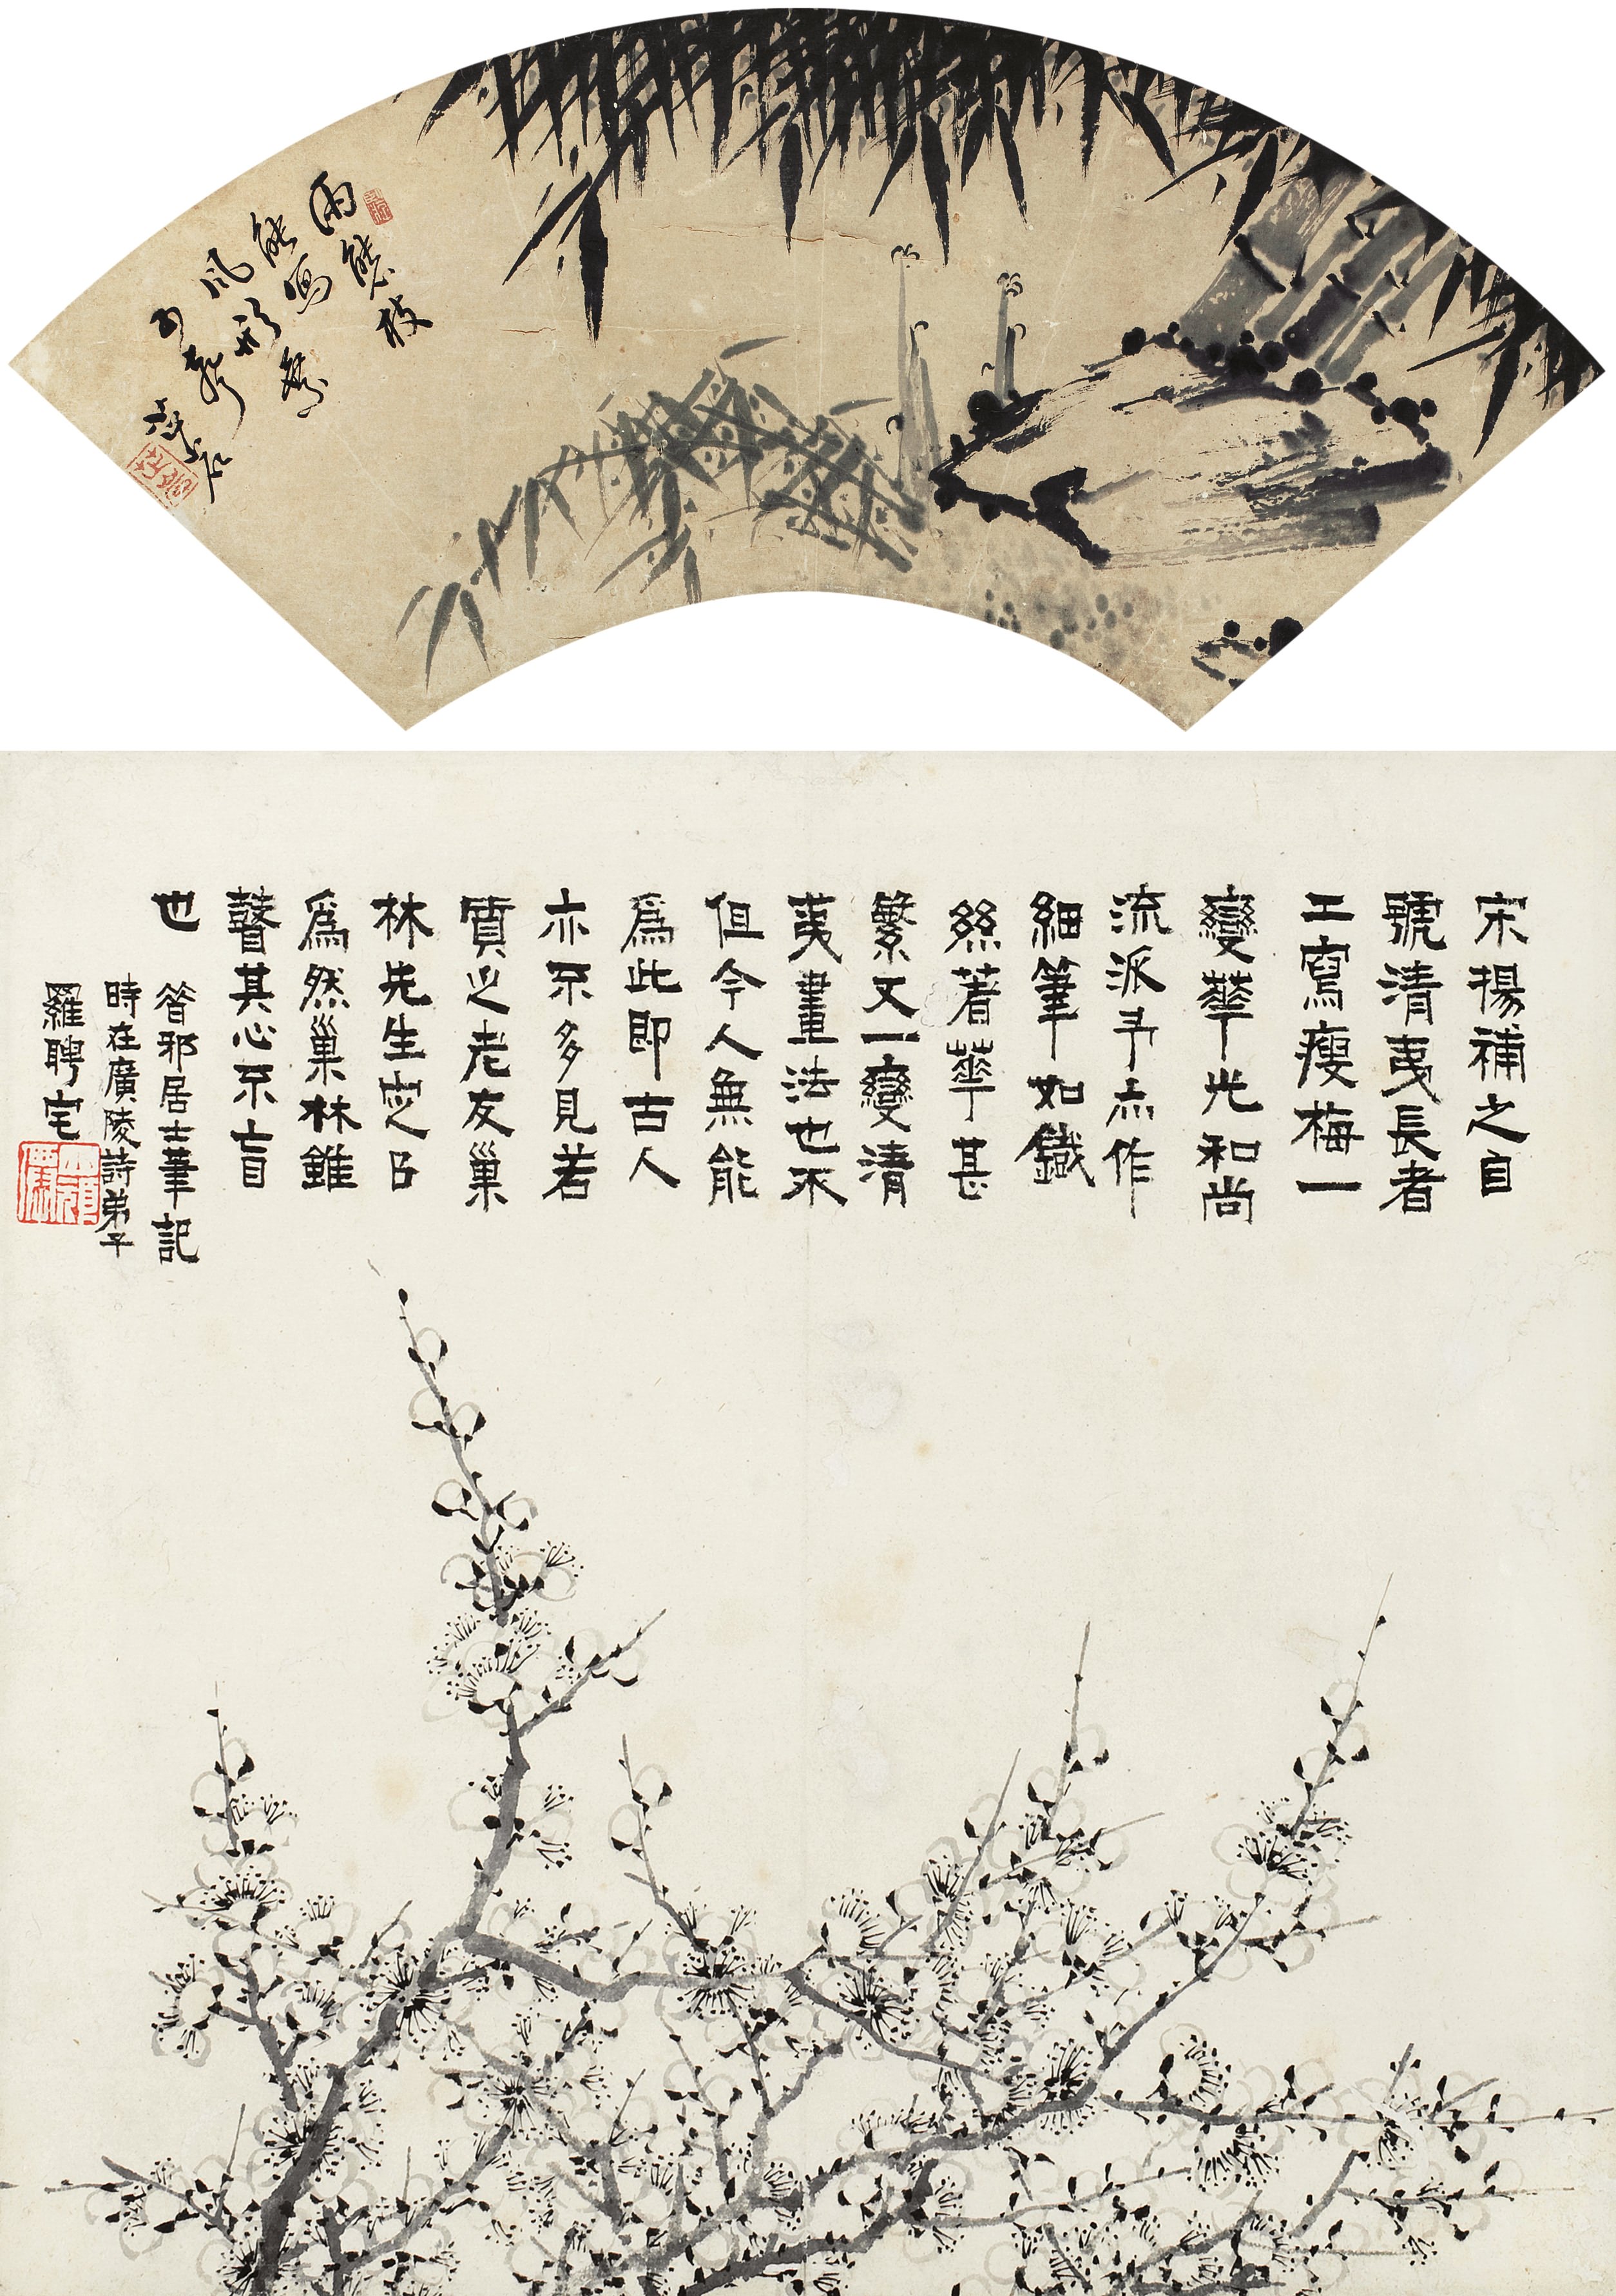 雨態枝
能寫
風形葉
可聽
籜石
宋揚補之自
號清夷長者
工寫瘦梅一
變華光和尚
流派予亦作
細筆如鐵
絲著華甚
繁又一變清
夷畫法也不
但今人無能
爲此即古人
亦不多見若
質之老友巢
林先生定㠯
爲然巢林雖
瞽其心不盲
也 昔邪居士筆記
時在廣陵詩弟子
羅聘宅